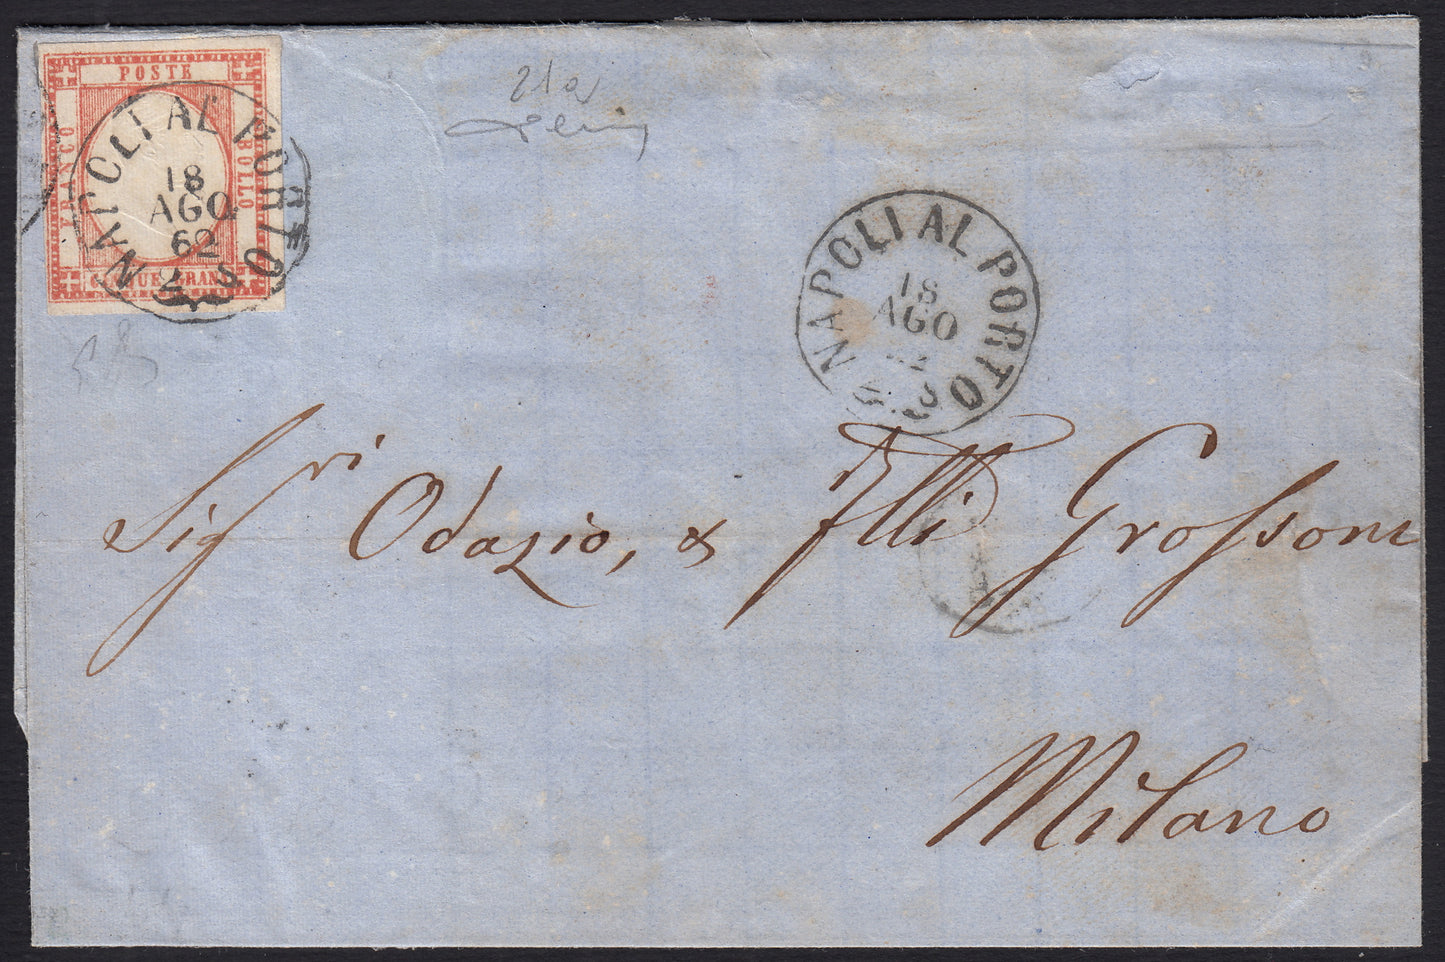 POSTE
FRANCO
BOLLO
CINQUE GRANA
NAPOLI AL PORTO
18
AGO
62
2 S
21a
NAPOLI AL PORTO
18
AGO
Sigri Odazio, & Flli Grossoni
Milano